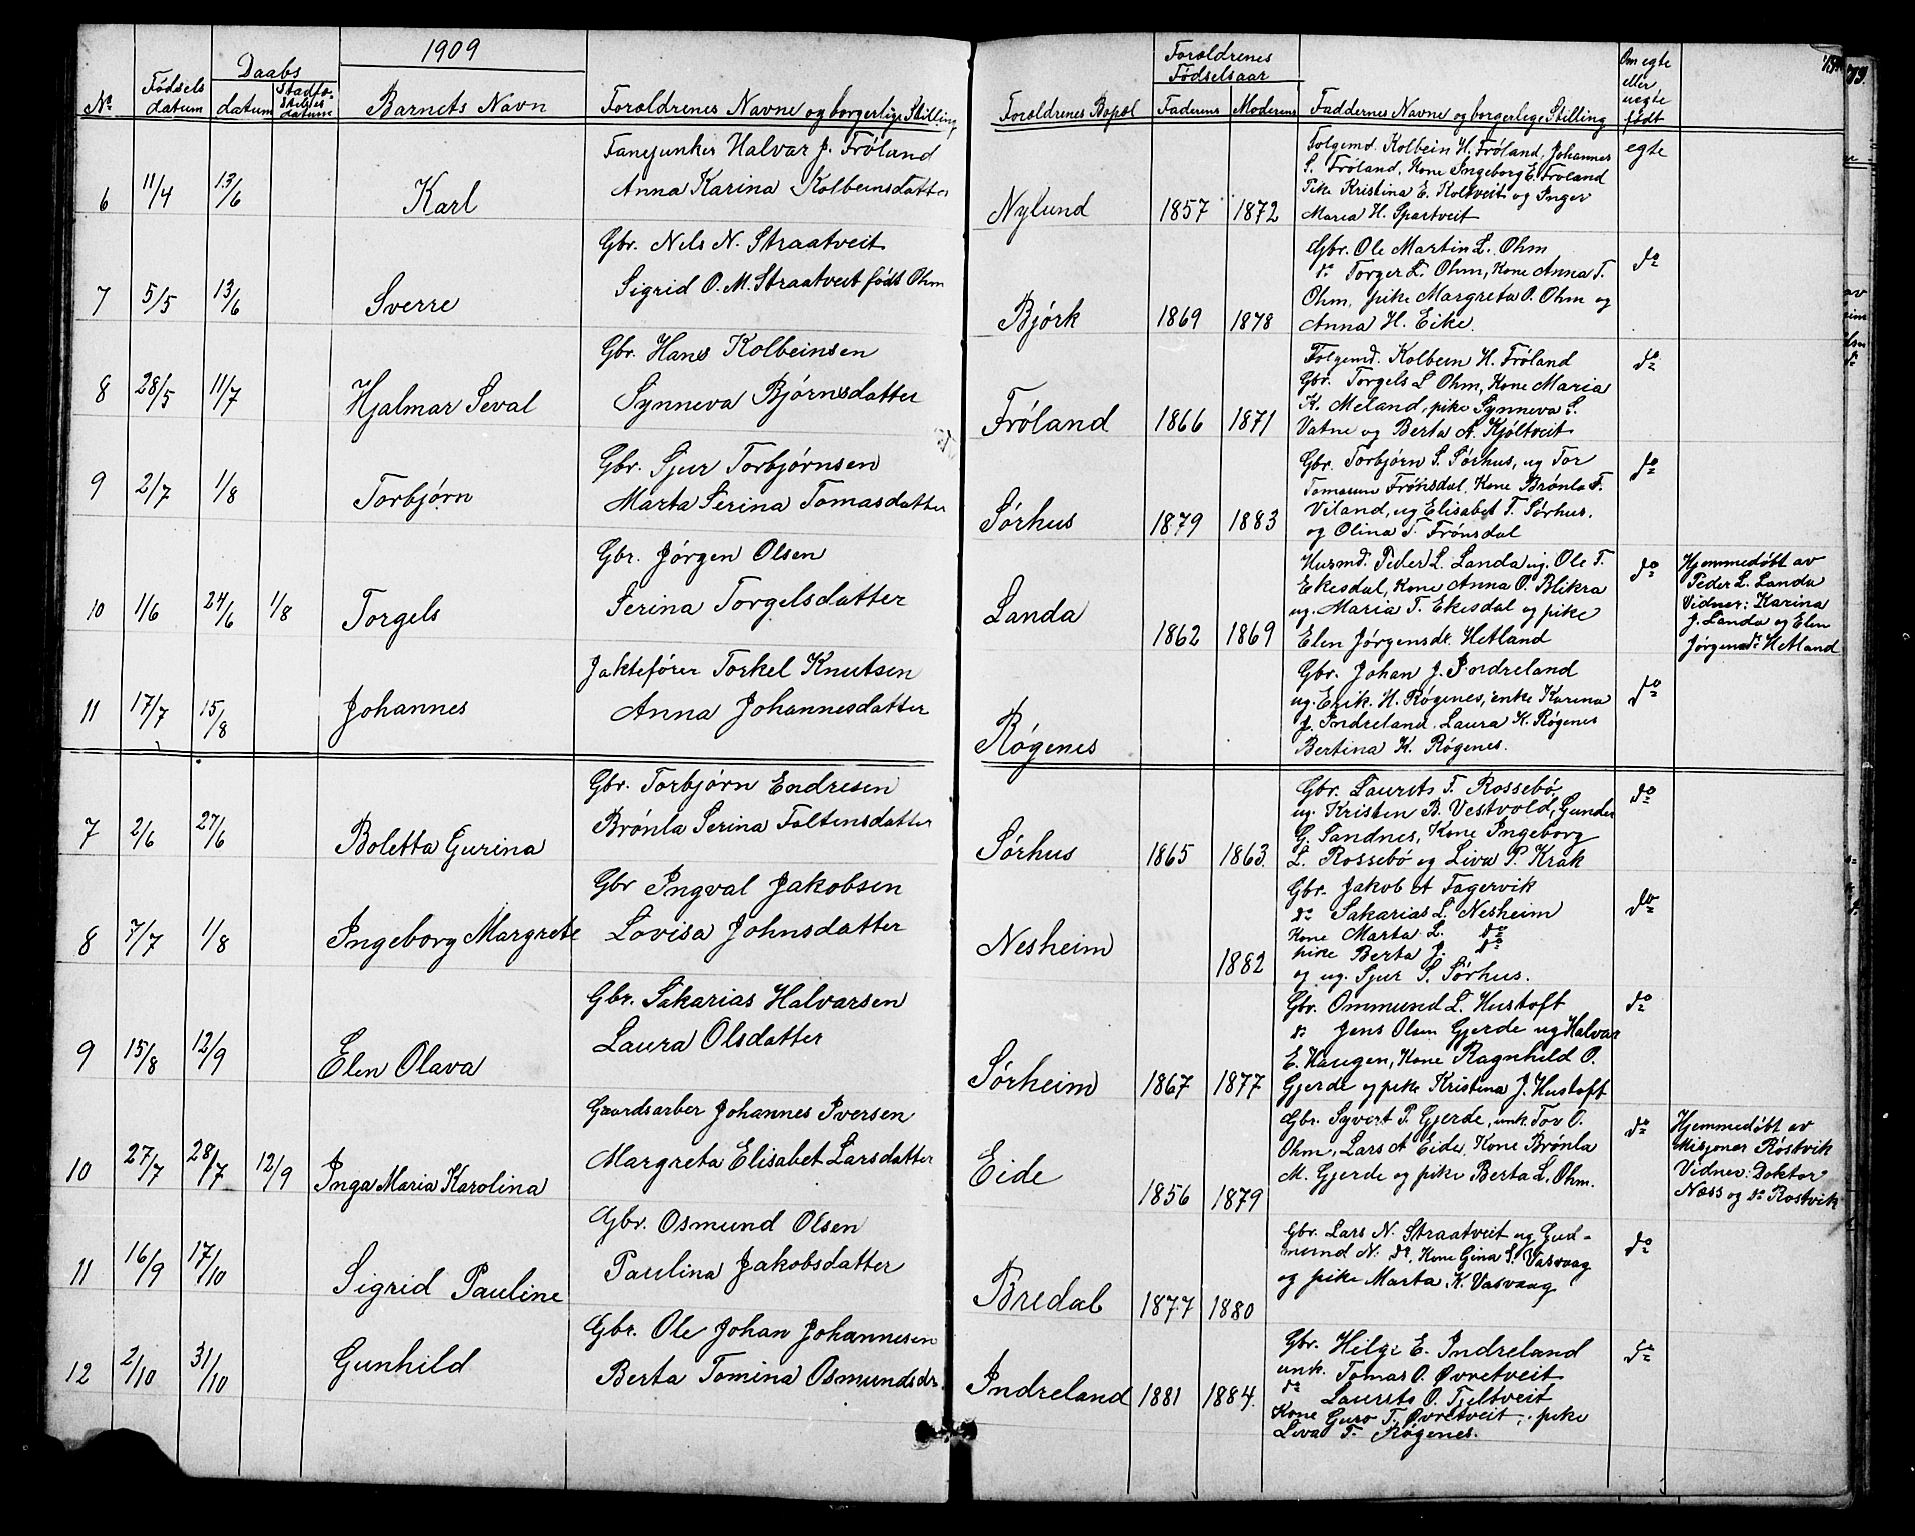 1909
No
Fødsels datum
Daabs
datum
Stadfæstelses datum
Barnets Navn
Forældrenes Navne og borgerlige Stilling
Forældrenes Bopæl
Forældrenes Fødselsaar
Faderens
Moderens
Faddernes Navne og borgerlige Stilling
Om egte eller uegte født
6 11/4 13/6 Karl
Fanejunker Halvar J. Fröland
Anna Karina Kolbeinsdatter
Nylund 1857 1872
Folgemd. Kolbein H. Fröland, Johannes
S. Fröland, Kone Ingeborg E. Fröland
Pike Kristina E. Koltveit og Inger
Maria H. Spartveit
egte
7 5/5 13/6 Sverre
Gbr. Nels N. Straatveit
Sigrid O. M. Straatveit født Ohm
Bjórk 1869 1878
Gbr. Ole Martin L. Ohm
do Torger L. Ohm, Kone Anna T.
Ohm, pike Margreta O. Ohm og
Anna H. Eike.
do
8 28/5 11/7 Hjalmar Seval
Gbr. Hans Kolbeinsen
Synneva Bjørnsdatter
Fróland 1866 1871
Folgemd. Kolbein H. Fröland
Gbr. Torgels L Ohm, Kone Maria
K. Meland, pike Synneva S.
Vatne og Berta A. Kjóltveit
do
9 2/7 1/8 Torbjørn
Gbr. Sjur Torbjørnsen
Marta Serina Tomasdatter
Sórhus 1879 1883
Gbr. Torbjørn S. Sórhus, ug Tor
Tomasen Frónsdal, Kone Brónla F.
Viland, ug Elisabet T. Sórhus.
og Olina T. Frónsdal
do
10 1/6 24/6 1/8 Torgels
Gbr. Jórgen Olsen
Serina Torgelsdatter
Landa 1862 1869
Husmd. Peder L. Landa ug. Ole T.
Ekesdal, Kone Anna O. Blikra
ug. Maria T. Ekesdal og pike
Elen Jórgensdr. Hetland
do
Hjemmedóbt av
Peder L. Landa
Vidner: Karina
J. Landa og Elen
Jórgensdr. Hetland
11 17/7 15/8 Johannes
Jaktefórer Torkel Knutsen
Anna Johannesdatter
Rógenes
Gbr. Johan J. Indreland
ug. Erik. H. Røgenes, enke Karina
J. Indreland. Laura K. Røgenes
Bertina K. Røgenes.
do
7 2/6 27/6 Boletta Gurina
Gbr. Torbjørn Endresen
Brónla Serina Faltensdatter
Sórhus 1865 1863.
Gbr. Laurits T. Rossebó,
ug. Kristen B. Vestvold, Gunder
G. Sandnes, Kone Ingeborg
L. Rossebó og Liva P. Krak
do
8 7/7 1/8 Ingeborg Margrete
Gbr Ingval Jakobsen
Lovisa Johnsdatter
Nesheim 1882
Gbr. Jakob A Fagervik
do Sakarias L. Nesheim
Kone Marta L. do
pike Berta J. do
og ug. Sjur S. Sórhus.
do
9 15/8 12/9 Elen Olava
Gbr. Sakarias Halvarsen
Laura Olsdatter
Sórheim 1867 1877
Gbr. Ommund L. Hustoft
do Jens Olsen Gjerde ug Halvar
E. Haugen, Kone Ragnhild O.
Gjerde og pike Kristina J. Hustoft
do
10 27/7 28/7 12/9 Inga Maria Karolina
Gaardsarber Johannes Iversen
Margreta Elisabet Larsdatter
Eide 1856 1879
Gbr. Syvert P. Gjerde, unk. Tov O.
Ohm, Lars A Eide, Kone Brónla
M. Gjerde og pike Berta L. Ohm.
do
Hjemmedóbt av
Misjonær Róstvik
Vidner: Doktor
Næss og do Rostvik
11 16/9 17/10 Sigrid Pauline
Gbr. Osmund Olsen
Paulina Jakobsdatter
Bredal 1877 1880
Gbr. Lars N. Straatveit og Gud-
mund N. do, Kone Gina S. Vasvaag
og pike Marta K. Vasvaag
do
12 2/10 31/10 Gunhild
Gbr. Ole Johan Johannesen
Berta Tomina Osmundsdr.
Indreland 1881 1884.
Gbr. Helge E. Indreland
unk. Tomas O. Øvretveit
do Laurits O. Tjeltveit
Kone Guro T. Øvretveit, pike
Liva T. Røgenes.
do